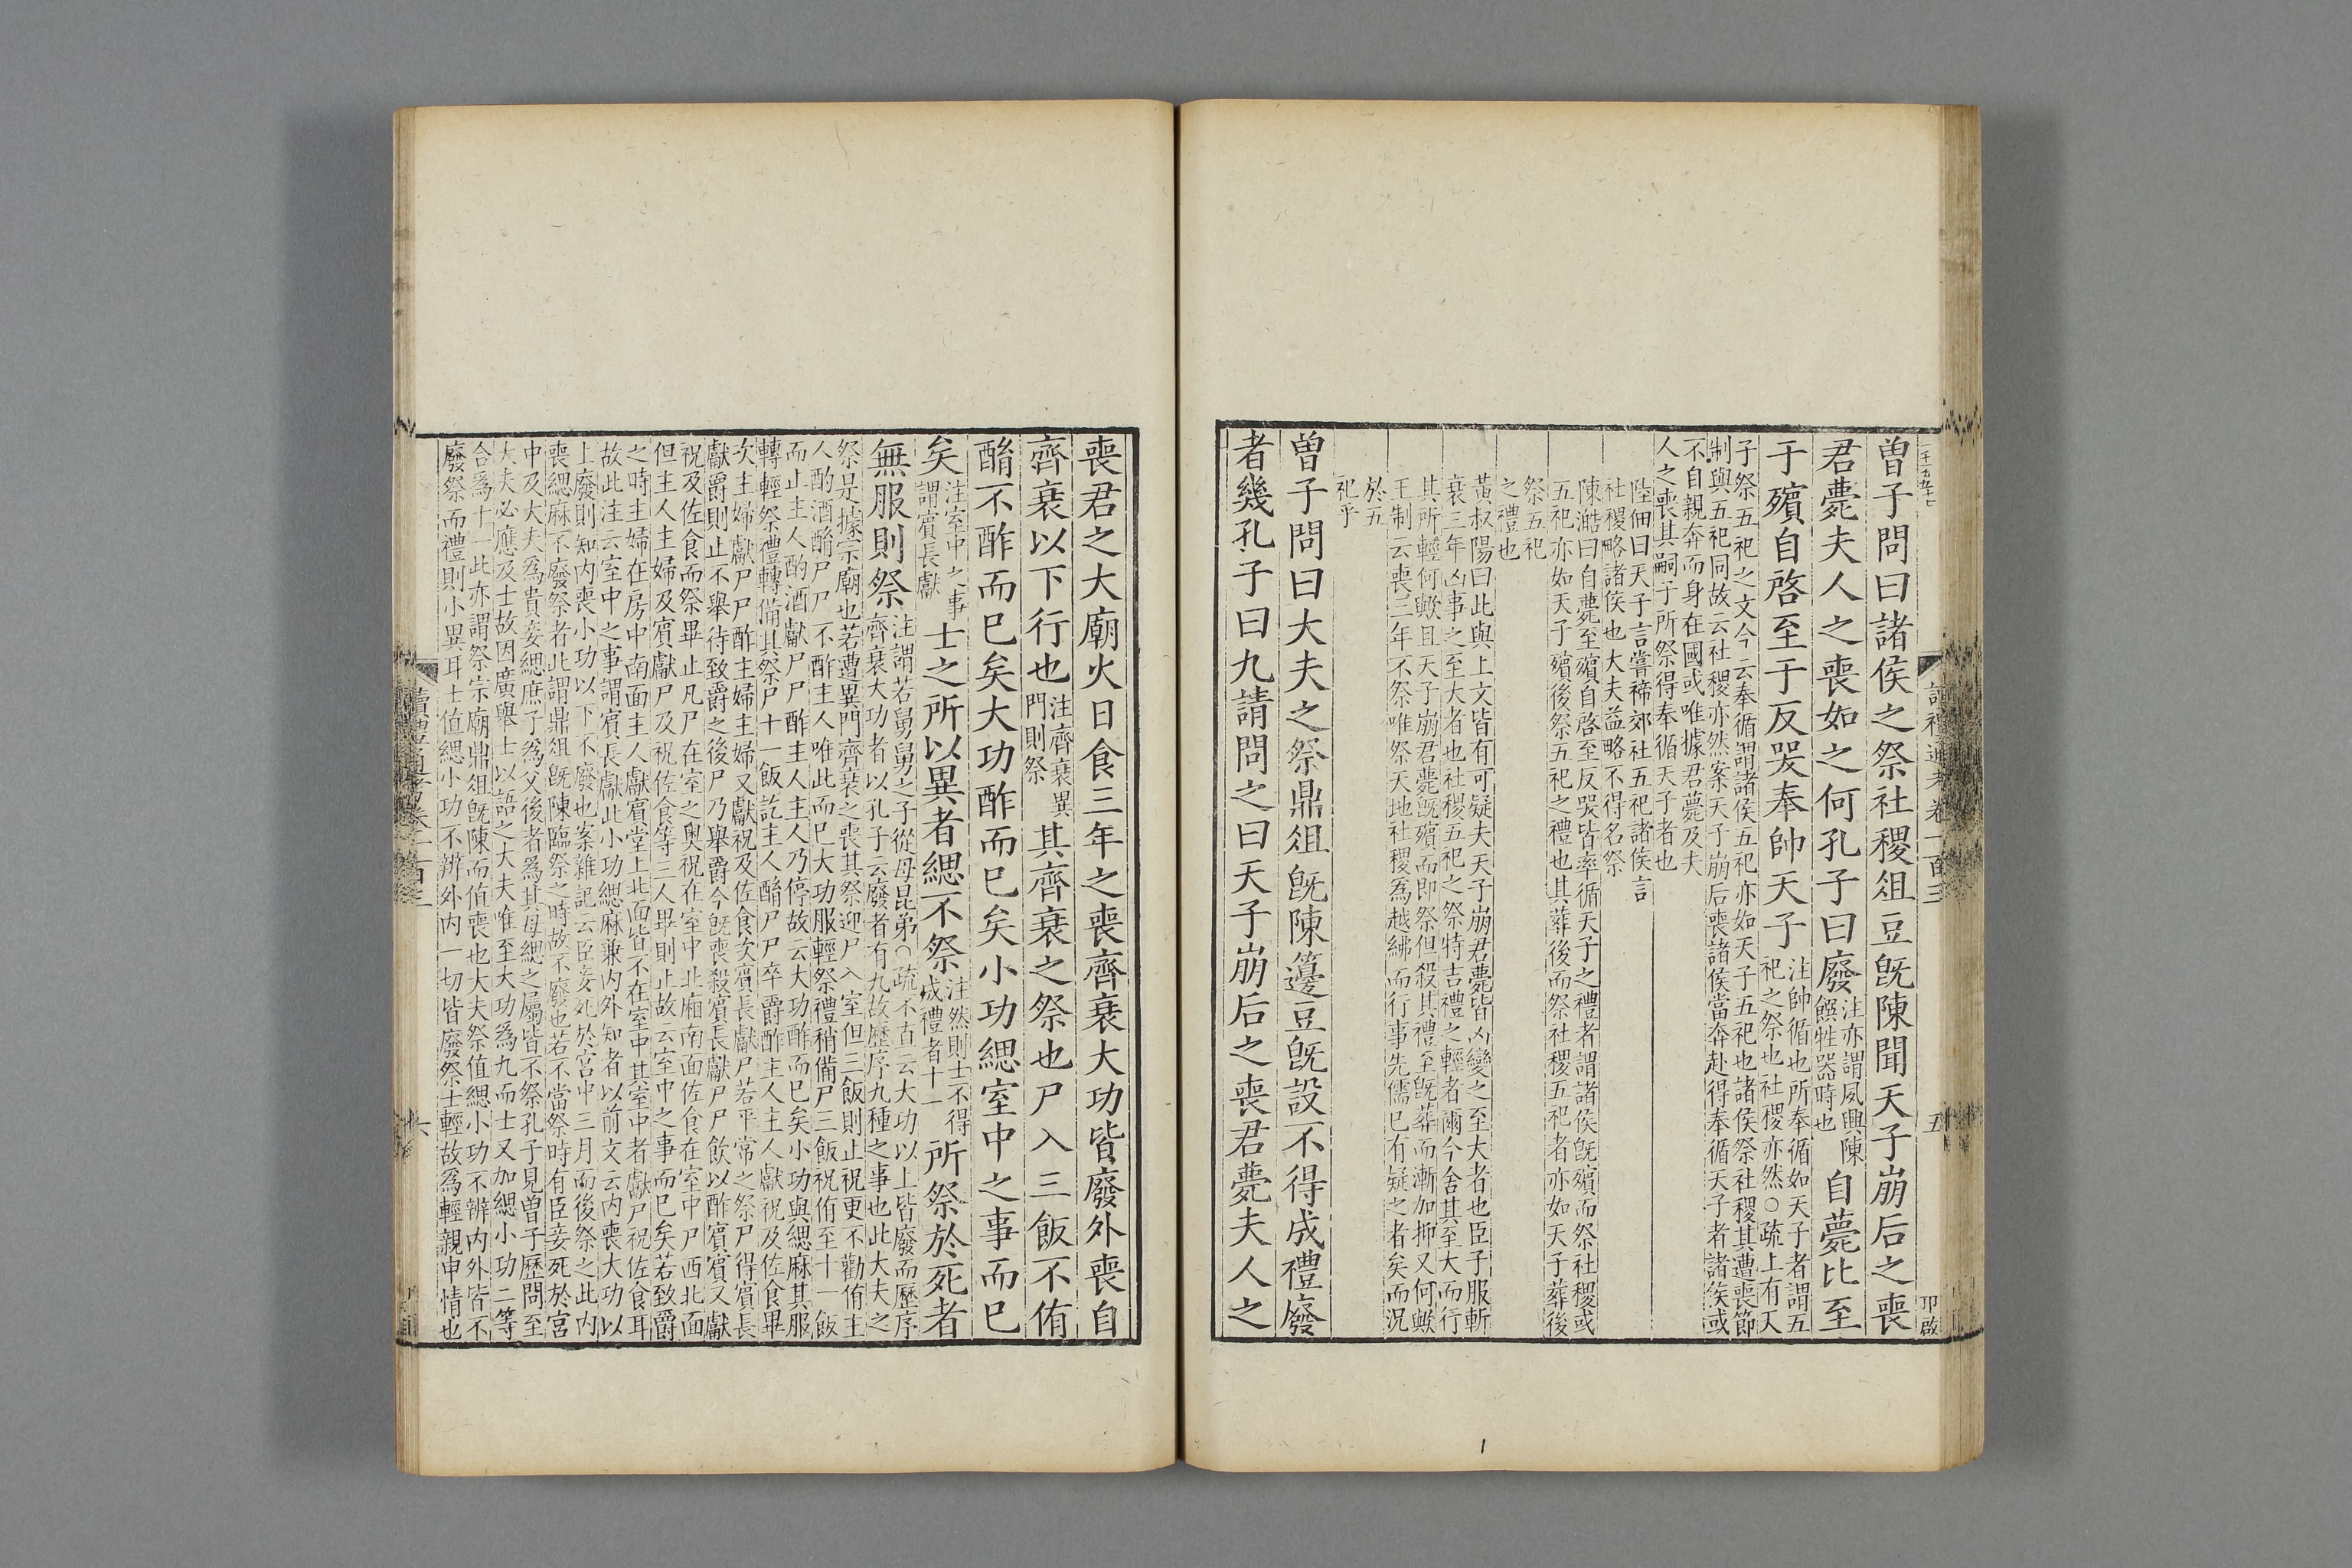 曾子問曰諸侯之祭社稷俎豆既陳聞天子崩后之喪
君薨夫人之喪如之何孔子曰廢
注亦謂夙興陳
饌牲器時也
自薨比至
于殯自啓至于反哭奉帥天子
注帥循也所奉循如天子者謂五
祀之祭也社稷亦然○疏上有天
子祭五祀之文今云奉循謂諸侯五祀亦如天子五祀也諸侯祭社稷其遭喪節
制與五祀同故云社稷亦然案天子崩后喪諸侯當奔赴得奉循天子者諸侯或
不自親奔而身在國或唯據君薨及夫
人之喪其嗣子所祭得奉循天子者也
陸佃曰天子言嘗禘郊社五祀諸侯言
社稷略諸侯也大夫益略不得名祭
陳澔曰自薨至殯自啓至反哭皆率循天子之禮者謂諸侯既殯而祭社稷或
五祀亦如天子殯後祭五祀之禮也其葬後而祭社稷五祀者亦如天子葬後
祭五祀
之禮也
黃叔陽曰此與上文皆有可疑夫天子崩君薨皆凶變之至大者也臣子服斬
衰三年凶事之至大者也社稷五祀之祭特吉禮之輕者爾今舍其至大而行
其所輕何歟且天子崩君薨既殯而即祭但殺其禮至既葬而漸加抑又何歟
王制云喪三年不祭唯祭天地社稷爲越紼而行事先儒已有疑之者矣而況
於五
祀乎
曾子問曰大夫之祭鼎俎既陳籩豆既設不得成禮廢
者幾孔子曰九請問之曰天子崩后之喪君薨夫人之
讀禮通考卷一百三
五
喪君之大廟火日食三年之喪齊衰大功皆廢外喪自
齊衰以下行也
注齊衰異
門則祭
其齊衰之祭也尸入三飯不侑
酳不酢而已矣大功酢而已矣小功緦室中之事而已
矣
注室中之事
謂賓長獻
士之所以異者緦不祭
注然則士不得
成禮者十一
所祭於死者
無服則祭
注謂若舅舅之子從母昆弟○疏不直云大功以上皆廢而歷序
齊衰大功者以孔子云廢者有九故歷序九種之事也此大夫之
祭是據宗廟也若遭異門齊衰之喪其祭迎尸入室但三飯則止祝更不勸侑主
人酌酒酳尸尸不酢主人唯此而已大功服輕祭禮稍備尸三飯祝侑至十一飯
而止主人酌酒獻尸尸酢主人主人乃停故云大功酢而已矣小功與緦麻其服
轉輕祭禮轉備其祭尸十一飯訖主人酳尸尸卒爵酢主人主人獻祝及佐食畢
次主婦獻尸尸酢主婦主婦又獻祝及佐食次賓長獻尸若平常之祭尸得賓長
獻爵則止不舉待致爵之後尸乃舉爵今既喪殺賓長獻尸尸飲以酢賓賓又獻
祝及佐食而祭畢止凡尸在室之奧祝在室中北廂南面佐食在室中戶西北面
但主人主婦及賓獻尸及祝佐食等三人畢則止故云室中之事而已矣若致爵
之時主婦在房中南面主人獻賓堂上北面皆不在室中其室中者獻尸祝佐食耳
故此注云室中之事謂賓長獻此小功緦麻兼內外知者以前文云內喪大功以
上廢則知內喪小功以下不廢也案雜記云臣妾死於宮中三月而後祭之此內
喪緦麻不廢祭者此謂鼎俎既陳臨祭之時故不廢也若不當祭時有臣妾死於宮
中及大夫爲貴妾緦庶子爲父後者爲其母緦之屬皆不祭孔子見曾子歷問至
大夫必應及士故因廣舉士以語之大夫唯至大功爲九而士又加緦小功二等
合爲十一此亦謂祭宗廟鼎俎既陳而值喪也大夫祭值緦小功不辨內外皆不
廢祭而禮則小異耳士值緦小功不辨外內一切皆廢祭士輕故爲輕親申情也
讀禮通考卷一百三
六